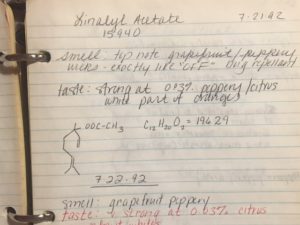 Linalyl Acetate 7-21-92
15940
smell: top note grapefruit/peppery
- exactly like "OFF" bug repellant
taste: strong at 0.03% peppery/citrus
white part of oranges
OOC-CH3 C12 H20 O2 = 196.29
7-22-92
smell: grapefruit peppery
taste: strong at 0.03% citrus